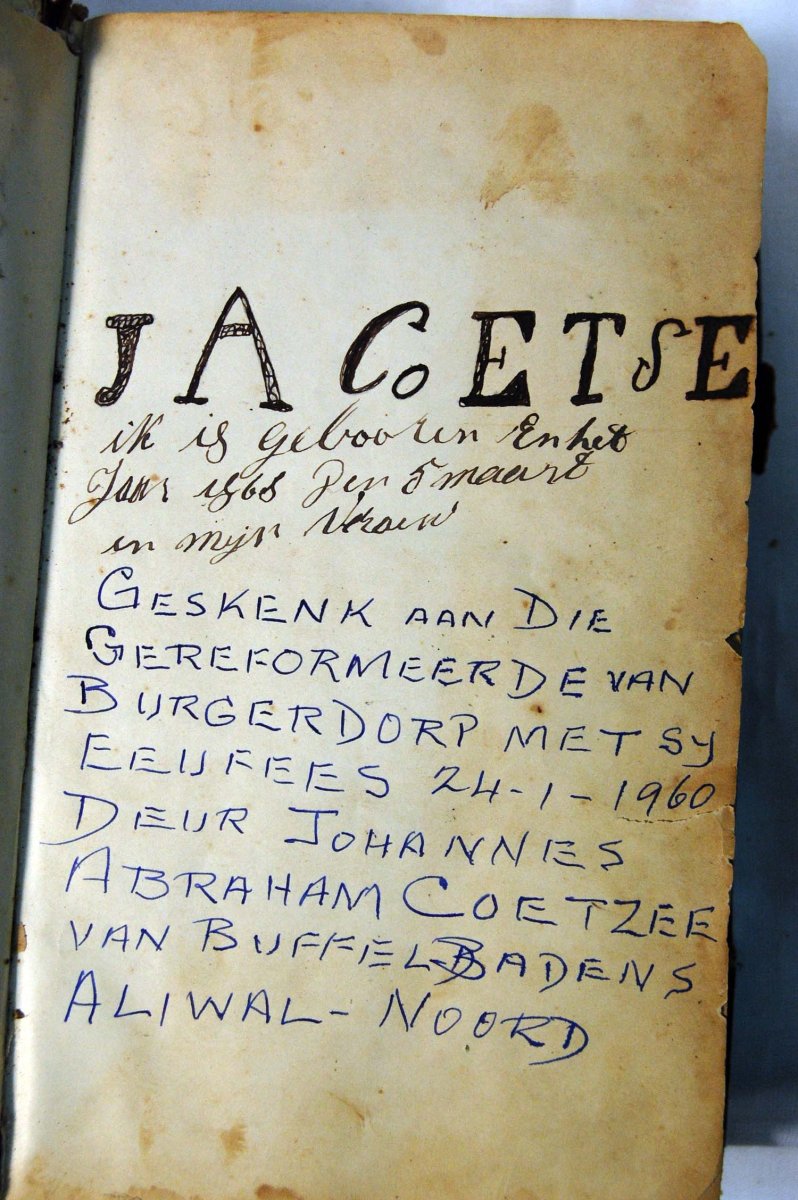 J A CoETSE
ik is gebooren En het
Jaar 1868 Den 5 maart
en mijn Vrouw
GESKENK AAN DIE
GEREFORMEERDE VAN
BURGERDORP MET SY
EEUFEES 24-1-1960
DEUR JOHANNES
ABRAHAM COETZEE
VAN BUFFELSBADENS
ALIWAL-NOORD